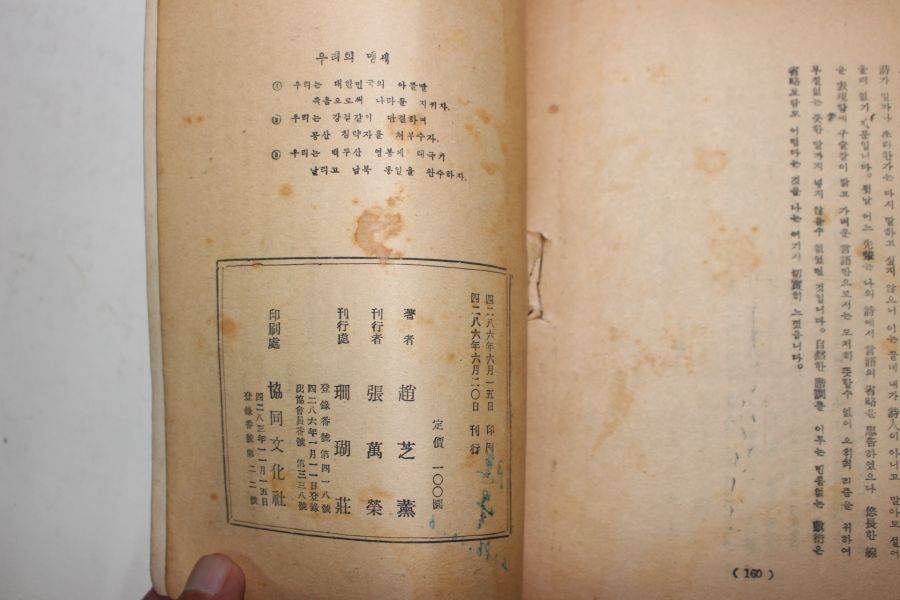 우리의 맹세
① 우리는 대한민국의 아들딸
죽음으로써 나라를 지키자.
② 우리는 강철같이 단결하여
공산 침약자를 처부수자.
③ 우리는 백두산 영봉에 태극기
날리고 남북 통일을 완수하자.
四二八六年六月一五日 印刷
四二八六年六月二〇日 刊行
定價 一〇〇圜
著者 趙芝薰
刊行者 張萬榮
刊行處 珊瑚莊
登錄番號 第四一八號
四二八六年一月一一日登錄
出協會員番號 第三三八號
印刷處 協同文化社
四二八三年一一月一五日
登錄番號 第二二號
詩가 얼마나 초라한가는 다시 말하고 싶지 않으니 이는 끝내 내가 詩人이 아니고 말아도 설어
울리 없기 때문입니다. 뒷날 어느 先輩는 나의 詩에서 言語의 省略을 忠告하였으나 悠長한 線
을 表現함에 구슬같이 맑고 가벼운 言語만으로서는 도저히 뜻할수 없이 오히려 리즘을 위하여
부질없는 듯한 말까지 넣지 않을수 없었던 것입니다. 自然한 諧調를 이루는 빈틈없는 敷衍은
省略보담도 어렵다는 것을 나는 여기서 切實히 느꼈읍니다.
( 160 )